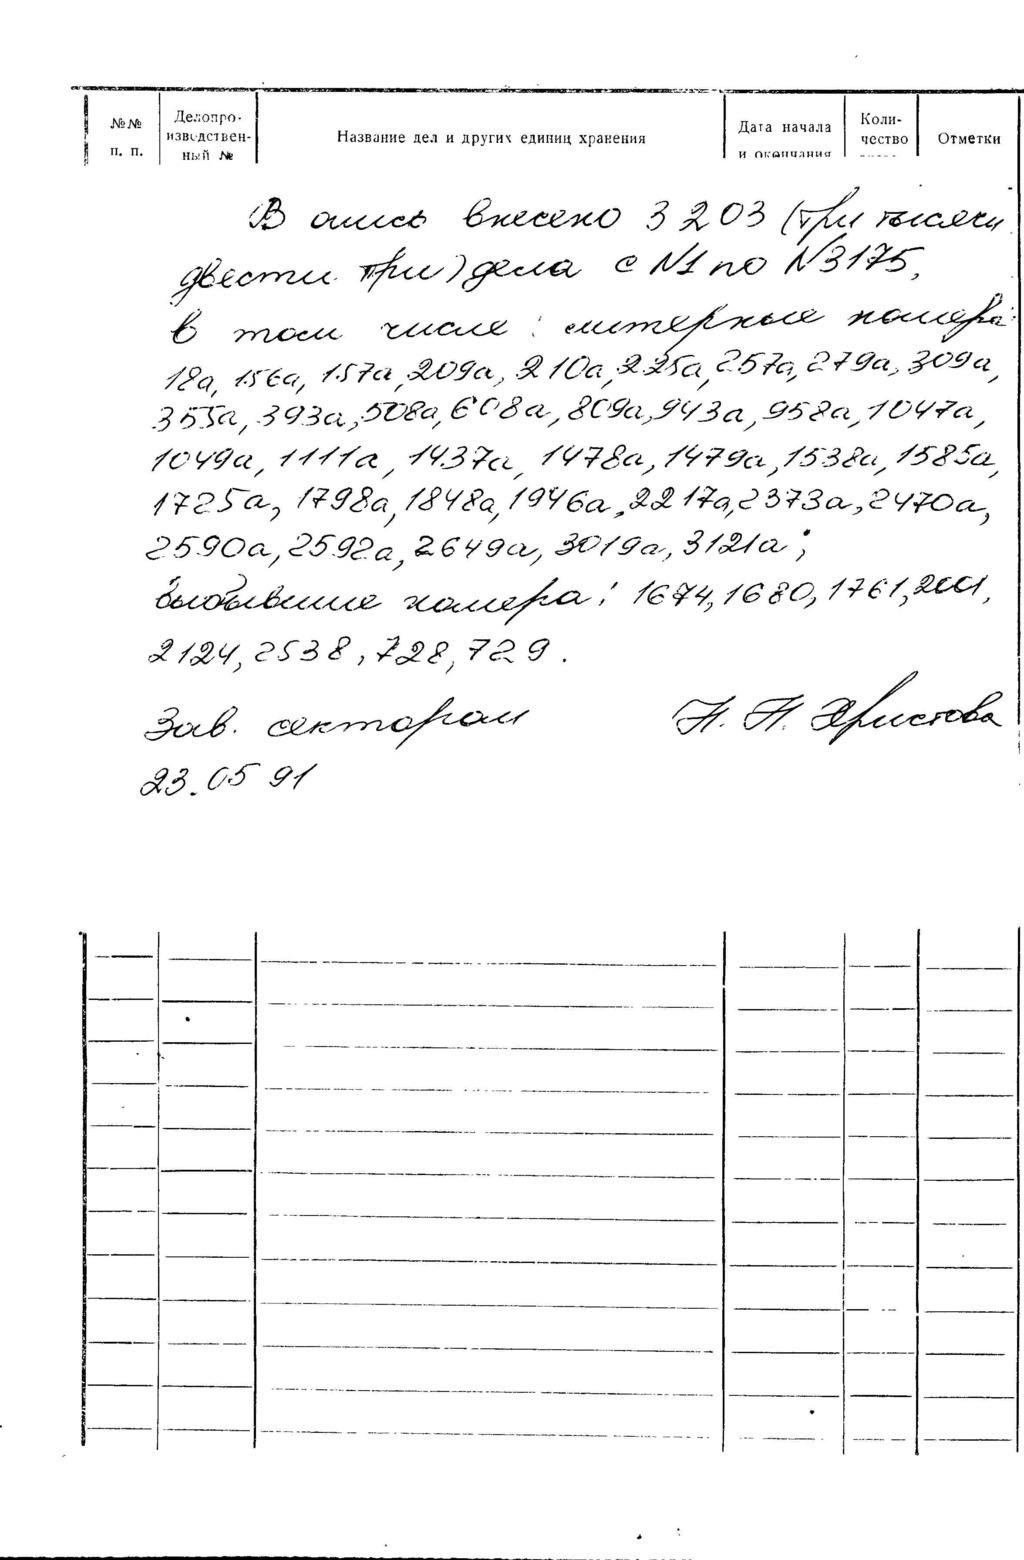 №№ п. п.
Делопроизводственный №
Название дел и других единиц хранения
Дата начала и окончания
Количество
Отметки
В опись внесено 3203 (три тысячи
двести три) дела с N1 по N3175,
в том числе: литерные номера:
18а, 156а, 157а, 209а, 210а, 225а, 257а, 279а, 309а,
355а, 393а, 508а, 608а, 809а, 943а, 958а, 1047а,
1049а, 1111а, 1437а, 1478а, 1479а, 1538а, 1585а,
1725а, 1798а, 1848а, 1946а, 2217а, 2373а, 2470а,
2590а, 2592а, 2649а, 3019а, 3121а;
выбывшие номера: 1674, 1680, 1761, 2001,
2124, 2538, 728, 729.
Зав. сектором Н. Н. Христова
23.05 91